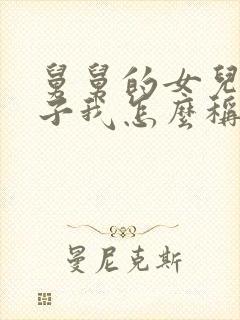 舅舅的女兒
子我怎麼稱
曼尼克斯